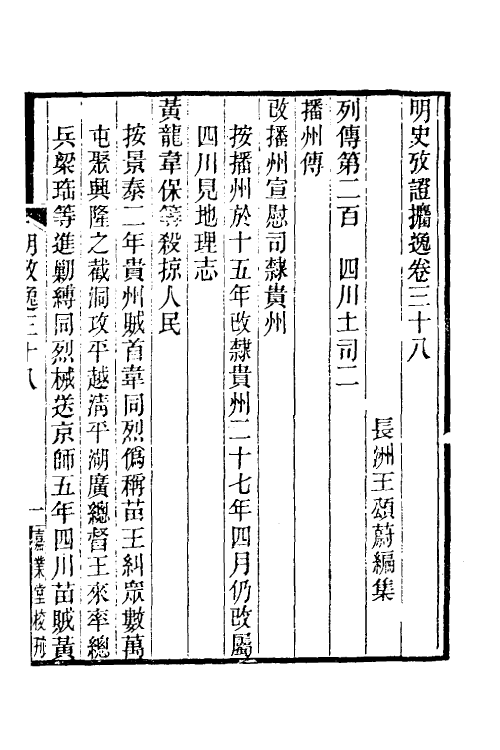 明史攷證攟逸卷三十八
長洲王頌蔚編集
列傳第二百　四川土司二
播州傳
改播州宣慰司隸貴州
按播州於十五年改隸貴州二十七年四月仍改屬
四川見地理志
黃龍韋保等殺掠人民
按景泰二年貴州賊首韋同烈僞稱苗王糾眾數萬
屯聚興隆之截洞攻平越淸平湖廣總督王來率總
兵梁珤等進勦縛同烈械送京師五年四川苗賊黃
明攷逸三十八
一
嘉業堂校刊